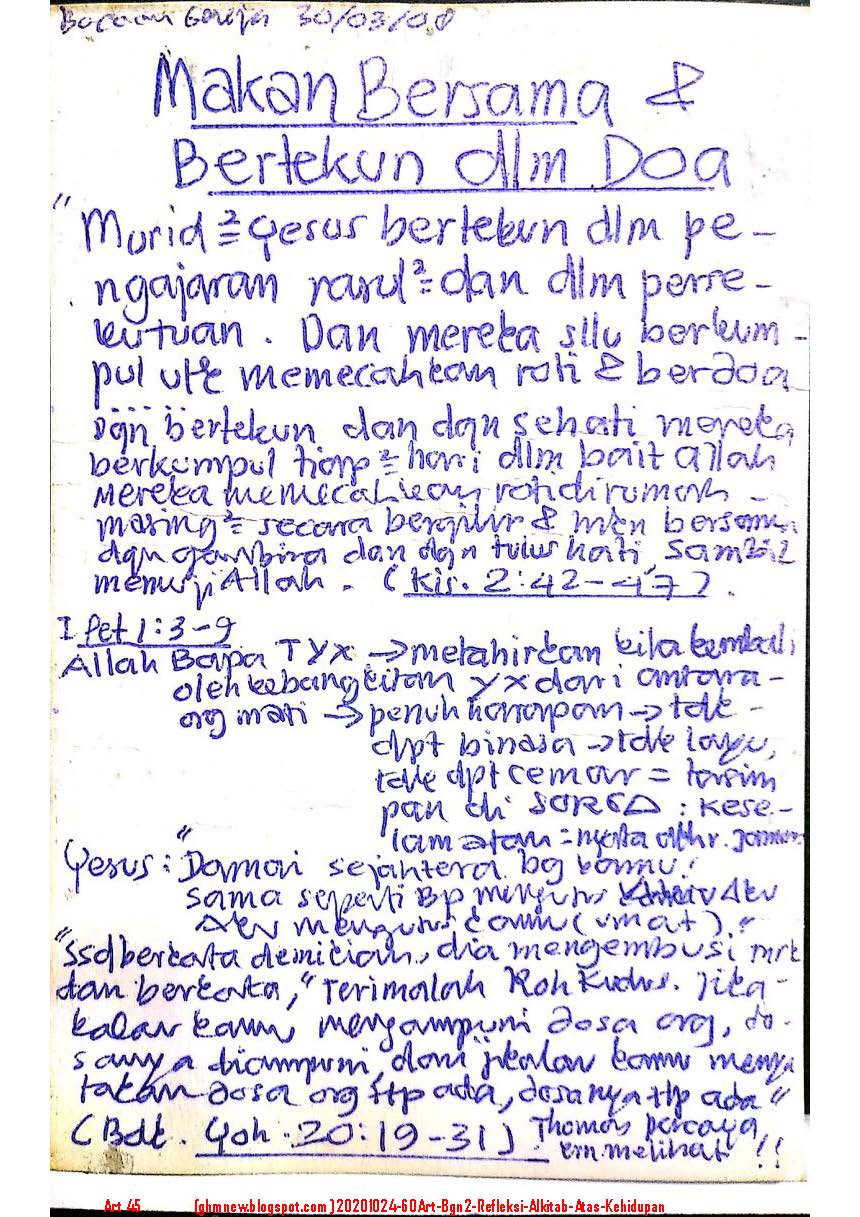 Bacaan Gereja 30/03/08
Makan Bersama &
Bertekun dlm Doa
"Murid² Yesus bertekun dlm pe-
ngajaran rasul² dan dlm perse-
kutuan. Dan mereka sllu berkum-
pul utk memecahkan roti & berdoa
.......
Dgn bertekun dan dgn sehati mereka
berkumpul tiap² hari dlm bait Allah
Mereka memecahkan roti di rumah -
masing² secara bergilir & mkn bersama
dgn gembira dan dgn tulus hati, sambil
memuji Allah. (Kis. 2:42-47).
I Pet 1:3-9
Allah Bapa TYX → melahirkan kita kembali
oleh kebangkitan YX dari antara-
org mati → penuh harapan → tdk -
dpt binasa → tdk layu,
tdk dpt cemar = tersim
pan di SORGA : Kese-
lamatan = nyata akhr. zaman
Yesus : "Damai sejahtera bg kamu!
sama seperti Bp mengutus Aku
Aku mengutus kamu (umat)."
"Ssd berkata demikian, dia mengembusi mrk
dan berkata, "Terimalah Roh Kudus. Jika-
kalau kamu mengampuni dosa org, do-
sanya diampuni, dan jikalau kamu menya
takan dosa org ttp ada, dosanya ttp ada"
(Bdk. Yoh. 20:19-31) Thomas percaya
krn melihat !!
Art 45 (ghmnew.blogspot.com)20201024-60Art-Bgn2-Refleksi-Alkitab-Atas-Kehidupan